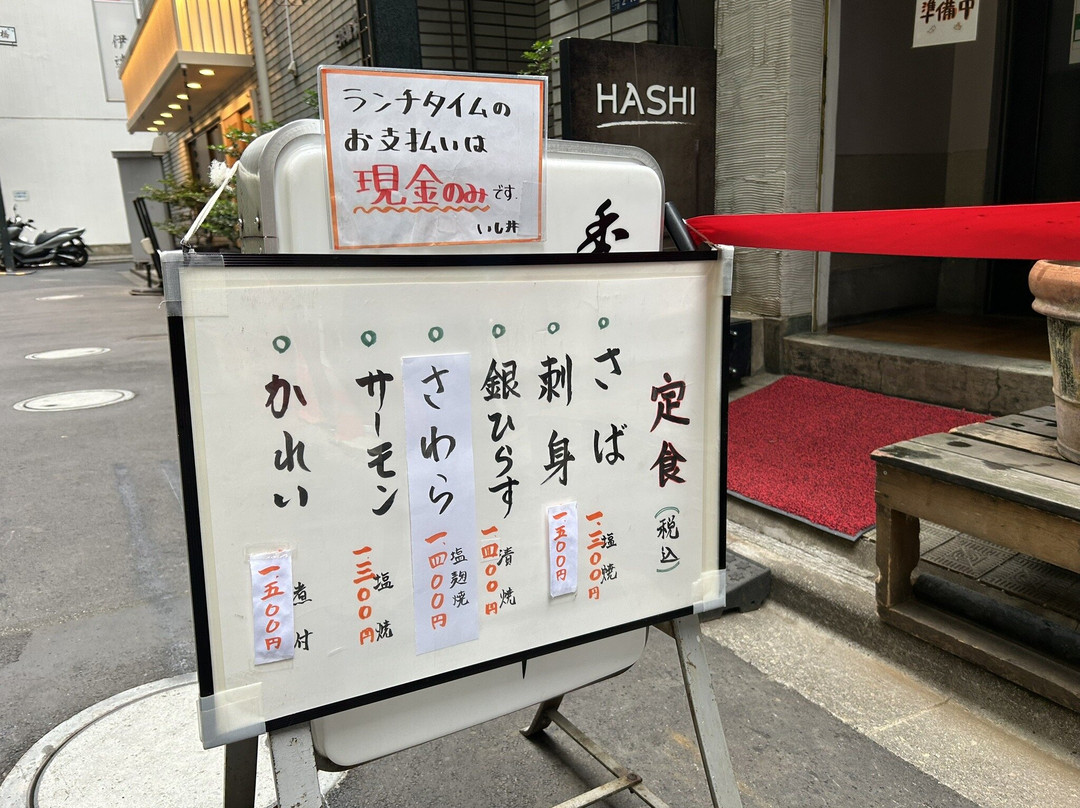 ランチタイムの
お支払いは
現金のみです
いし井
HASHI
準備中
香
定食(税込)
さば 塩焼
一.二〇〇円
刺身
一.五〇〇円
銀ひらす 漬焼
一.四〇〇円
さわら 塩麹焼
一.四〇〇円
サーモン 塩焼
一三〇〇円
かれい 煮付
一.五〇〇円